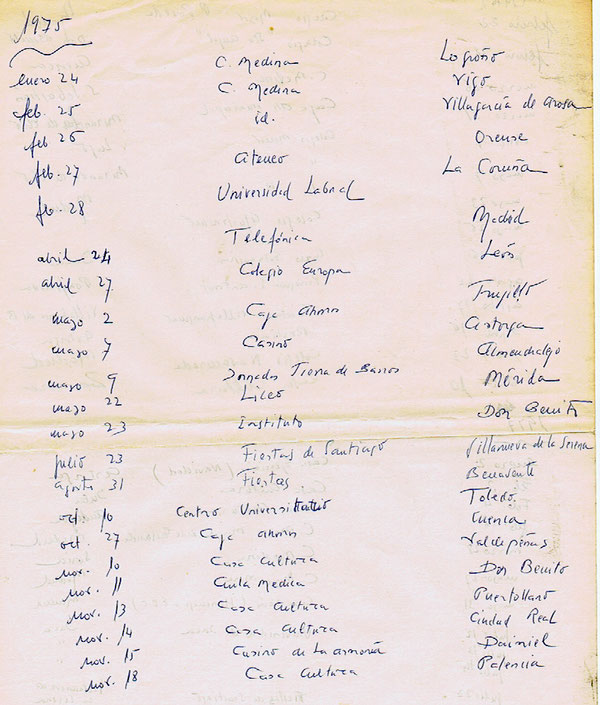 1975
enero 24 C. Medina Logroño
feb. 25 C. Medina Vigo
feb 26 id. Villagarcía de Arosa
feb. 27 Ateneo Orense
feb. 28 Universidad Labral La Coruña
abril 24 Telefónica Madrid
abril 27 Colegio Europa León
mayo 2 Caja ahorros Trujillo
mayo 7 Casino Astorga
mayo 9 Jornadas Tierra de Barros Almendralejo
mayo 22 Liceo Mérida
mayo 23 Instituto Don Benito
julio 23 Fiestas de Santiago Villanueva de la Serena
agosto 31 Fiestas. Benavente
oct. 10 Centro Universitario Toledo.
oct. 27 Caja ahorros Cuenca
nov. 10 Casa Cultura Valdepeñas
nov. 11 Aula Medica Don Benito
nov. 13 Casa Cultura Puertollano
nov. 14 Casa Cultura Ciudad Real
nov. 15 Casino de la armonía Daimiel
nov. 18 Casa Cultura Palencia